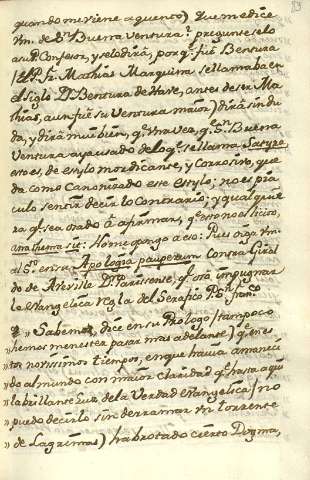 83
quando me viene a quento) Que me dice
Vm. de Sn. Buena Ventura? pregunteselo
a su P. Confesor, y se lo dirá, porq.e fue Bentura
(el P. Fr. Mathias Marquina se llamaba en
el siglo D. Bentura de Have, antes de ser Ma
thias, aunq. fue su Ventura maior) dirá sin du
da, y dirá mui bien, q.e una vez, q.e Sn. Buena
Ventura aia usado de lo q.e se llama Satyra
esto es, de estylo mordicante, y corrosivo, que
da como canonizado este estylo; no es pia
culo sentir, decir lo contrario; y qualquie
ra q.e sea osado à afirmar, q.e esto no es licito,
anathema sit: Ahora me opongo a eso: Pues oiga Vm.
al Sto. en su Apologia pauperum contra Giral
do de Atevilla Dtor. Parisiense, q.e osó impugnar
la evangelica regla del Serafico P. Sn. Franco.
» Sabemos, dice en su Prologo (tampoco
» hemos menester pasar mas adelante) q.e en es
» tos novissimos tiempos, en que havia amaneci
» do al mundo con maior claridad q.e hasta aqui
» la brillante luz de la Verdad evangelica (no
» puedo decirlo sin derramar un torrente
» de Lagrimas) ha brotado cierto Dogma,